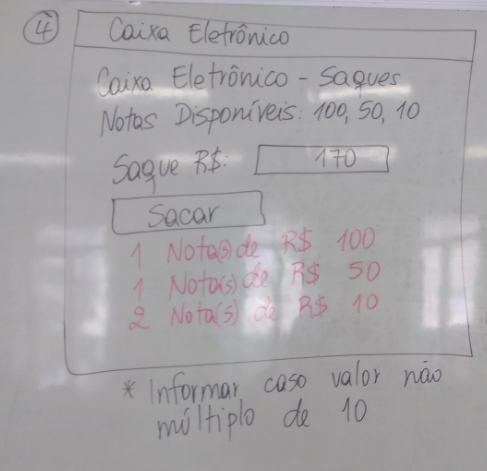 4
Caixa Eletrônico
Caixa Eletrônico - Saques
Notas Disponíveis: 100, 50, 10
Saque R$: 170
Sacar
1 Nota(s) de R$ 100
1 Nota(s) de R$ 50
2 Nota(s) de R$ 10
* Informar caso valor não
múltiplo de 10